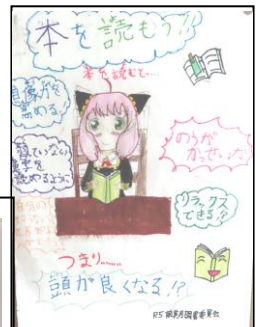 本を読もう!!
本を読むと…
想像力を
高める!
習っていない
漢字を
読めるように
のうが
かっせいか
リラックス
できる!?
つまり……
頭が良くなる!?